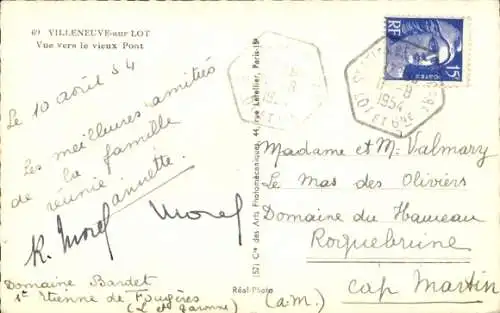 69 VILLENEUVE-sur LOT
Vue vers le vieux Pont
Le 10 août 54
Les meilleures amitiés
de la famille
réunie
annette.
K. Morel Morel
Domaine Bardet
St Etienne de Fougères
(L et garonne)
(57) Cie des Arts Photomécaniques, 44, rue Letellier, Paris-15e
Réal-Photo
RF
POSTES
15F
1954
LOT ET GNE
Madame et M. Valmary
Le Mas des Oliviers
Domaine du Hameau
Roquebrune
Cap Martin
(a.m.)